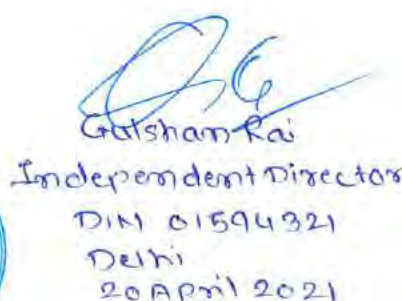 Gulshan Rai
Independent Director
DIN 01594321
Delhi
20 April 2021